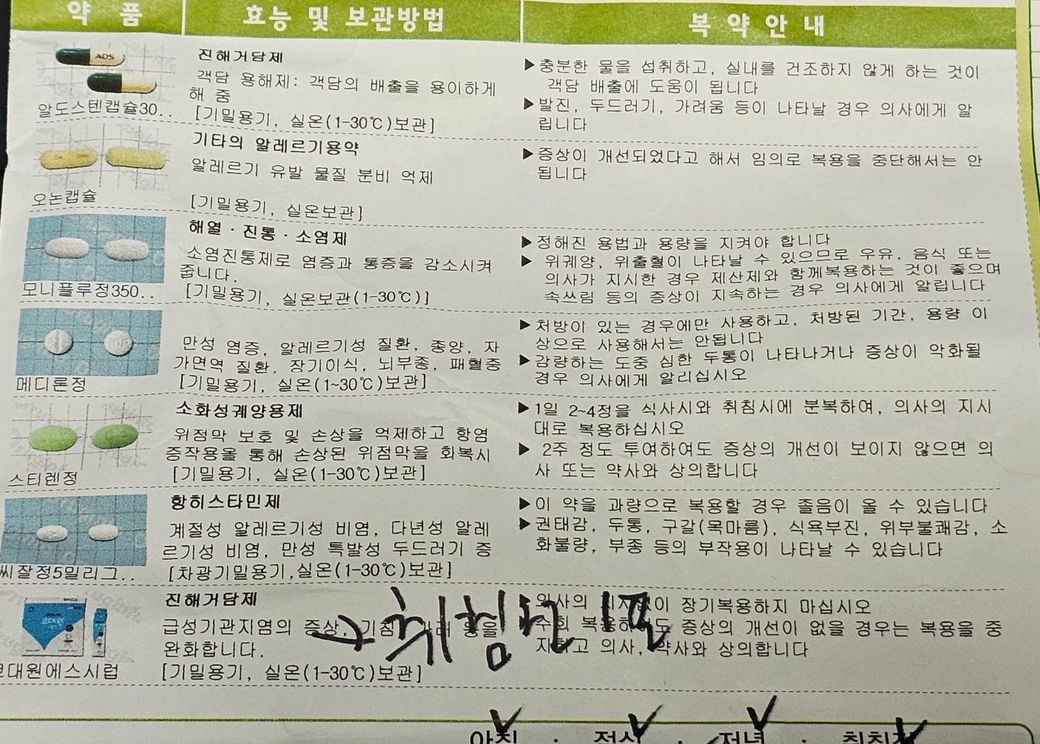 약 품 효능 및 보관방법 복 약 안 내
AOS
알도스텐캡슐30..
진해거담제
객담 용해제: 객담의 배출을 용이하게
해 줌
[기밀용기, 실온(1-30℃)보관]
▶충분한 물을 섭취하고, 실내를 건조하지 않게 하는 것이
객담 배출에 도움이 됩니다
▶발진, 두드러기, 가려움 등이 나타날 경우 의사에게 알
립니다
오논캡슐
기타의 알레르기용약
알레르기 유발 물질 분비 억제
[기밀용기, 실온보관]
▶증상이 개선되었다고 해서 임의로 복용을 중단해서는 안
됩니다
모니플루정350..
해열·진통·소염제
소염진통제로 염증과 통증을 감소시켜
줍니다.
[기밀용기, 실온보관(1-30℃)]
▶정해진 용법과 용량을 지켜야 합니다
▶ 위궤양, 위출혈이 나타날 수 있으므로 우유, 음식 또는
의사가 지시한 경우 제산제와 함께복용하는 것이 좋으며
속쓰림 등의 증상이 지속하는 경우 의사에게 알립니다
메디론정
만성 염증, 알레르기성 질환, 종양, 자
가면역 질환, 장기이식, 뇌부종, 패혈증
[기밀용기, 실온(1~30℃)보관]
▶처방이 있는 경우에만 사용하고, 처방된 기간, 용량 이
상으로 사용해서는 안됩니다
▶감량하는 도중 심한 두통이 나타나거나 증상이 악화될
경우 의사에게 알리십시오
스티렌정
소화성궤양용제
위점막 보호 및 손상을 억제하고 항염
증작용을 통해 손상된 위점막을 회복시
[기밀용기, 실온(1-30℃)보관]
▶1일 2~4정을 식사시와 취침시에 분복하여, 의사의 지시
대로 복용하십시오
▶ 2주 정도 투여하여도 증상의 개선이 보이지 않으면 의
사 또는 약사와 상의합니다
씨잘정5밀리그..
항히스타민제
계절성 알레르기성 비염, 다년성 알레
르기성 비염, 만성 특발성 두드러기 증
[차광기밀용기,실온(1-30℃)보관]
▶이 약을 과량으로 복용할 경우 졸음이 올 수 있습니다
▶권태감, 두통, 구갈(목마름), 식욕부진, 위부불쾌감, 소
화불량, 부종 등의 부작용이 나타날 수 있습니다
코대원에스시럽
진해거담제
급성기관지염의 증상
완화합니다.
[기밀용기, 실온(1-30℃)보관]
취침전 1포
장기복용하지 마십시오
증상의 개선이 없을 경우는 복용을 중
의사, 약사와 상의합니다
아침 · 점심 · 저녁 · 취침전